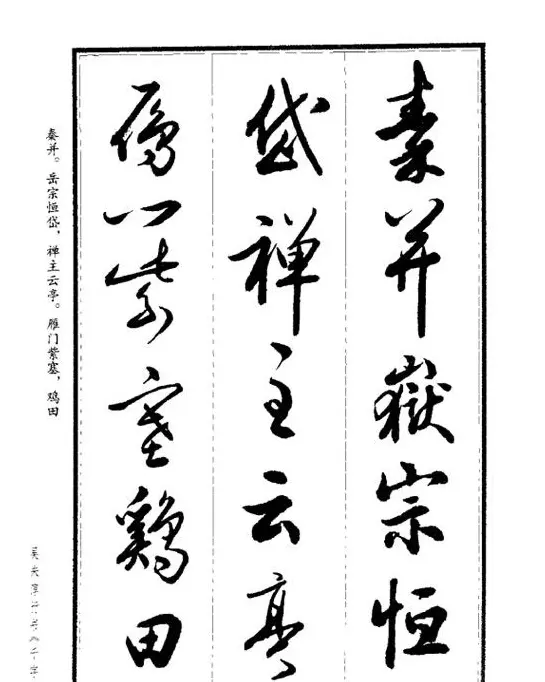 秦并嶽宗恒
岱禅主云亭
雁门紫塞鷄田
秦并。岳宗恒岱，禅主云亭。雁门紫塞，鸡田